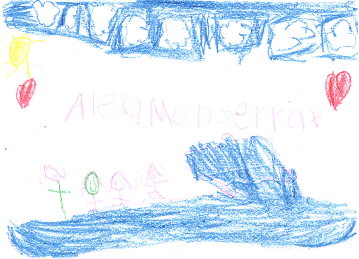 Alexa Monserrat